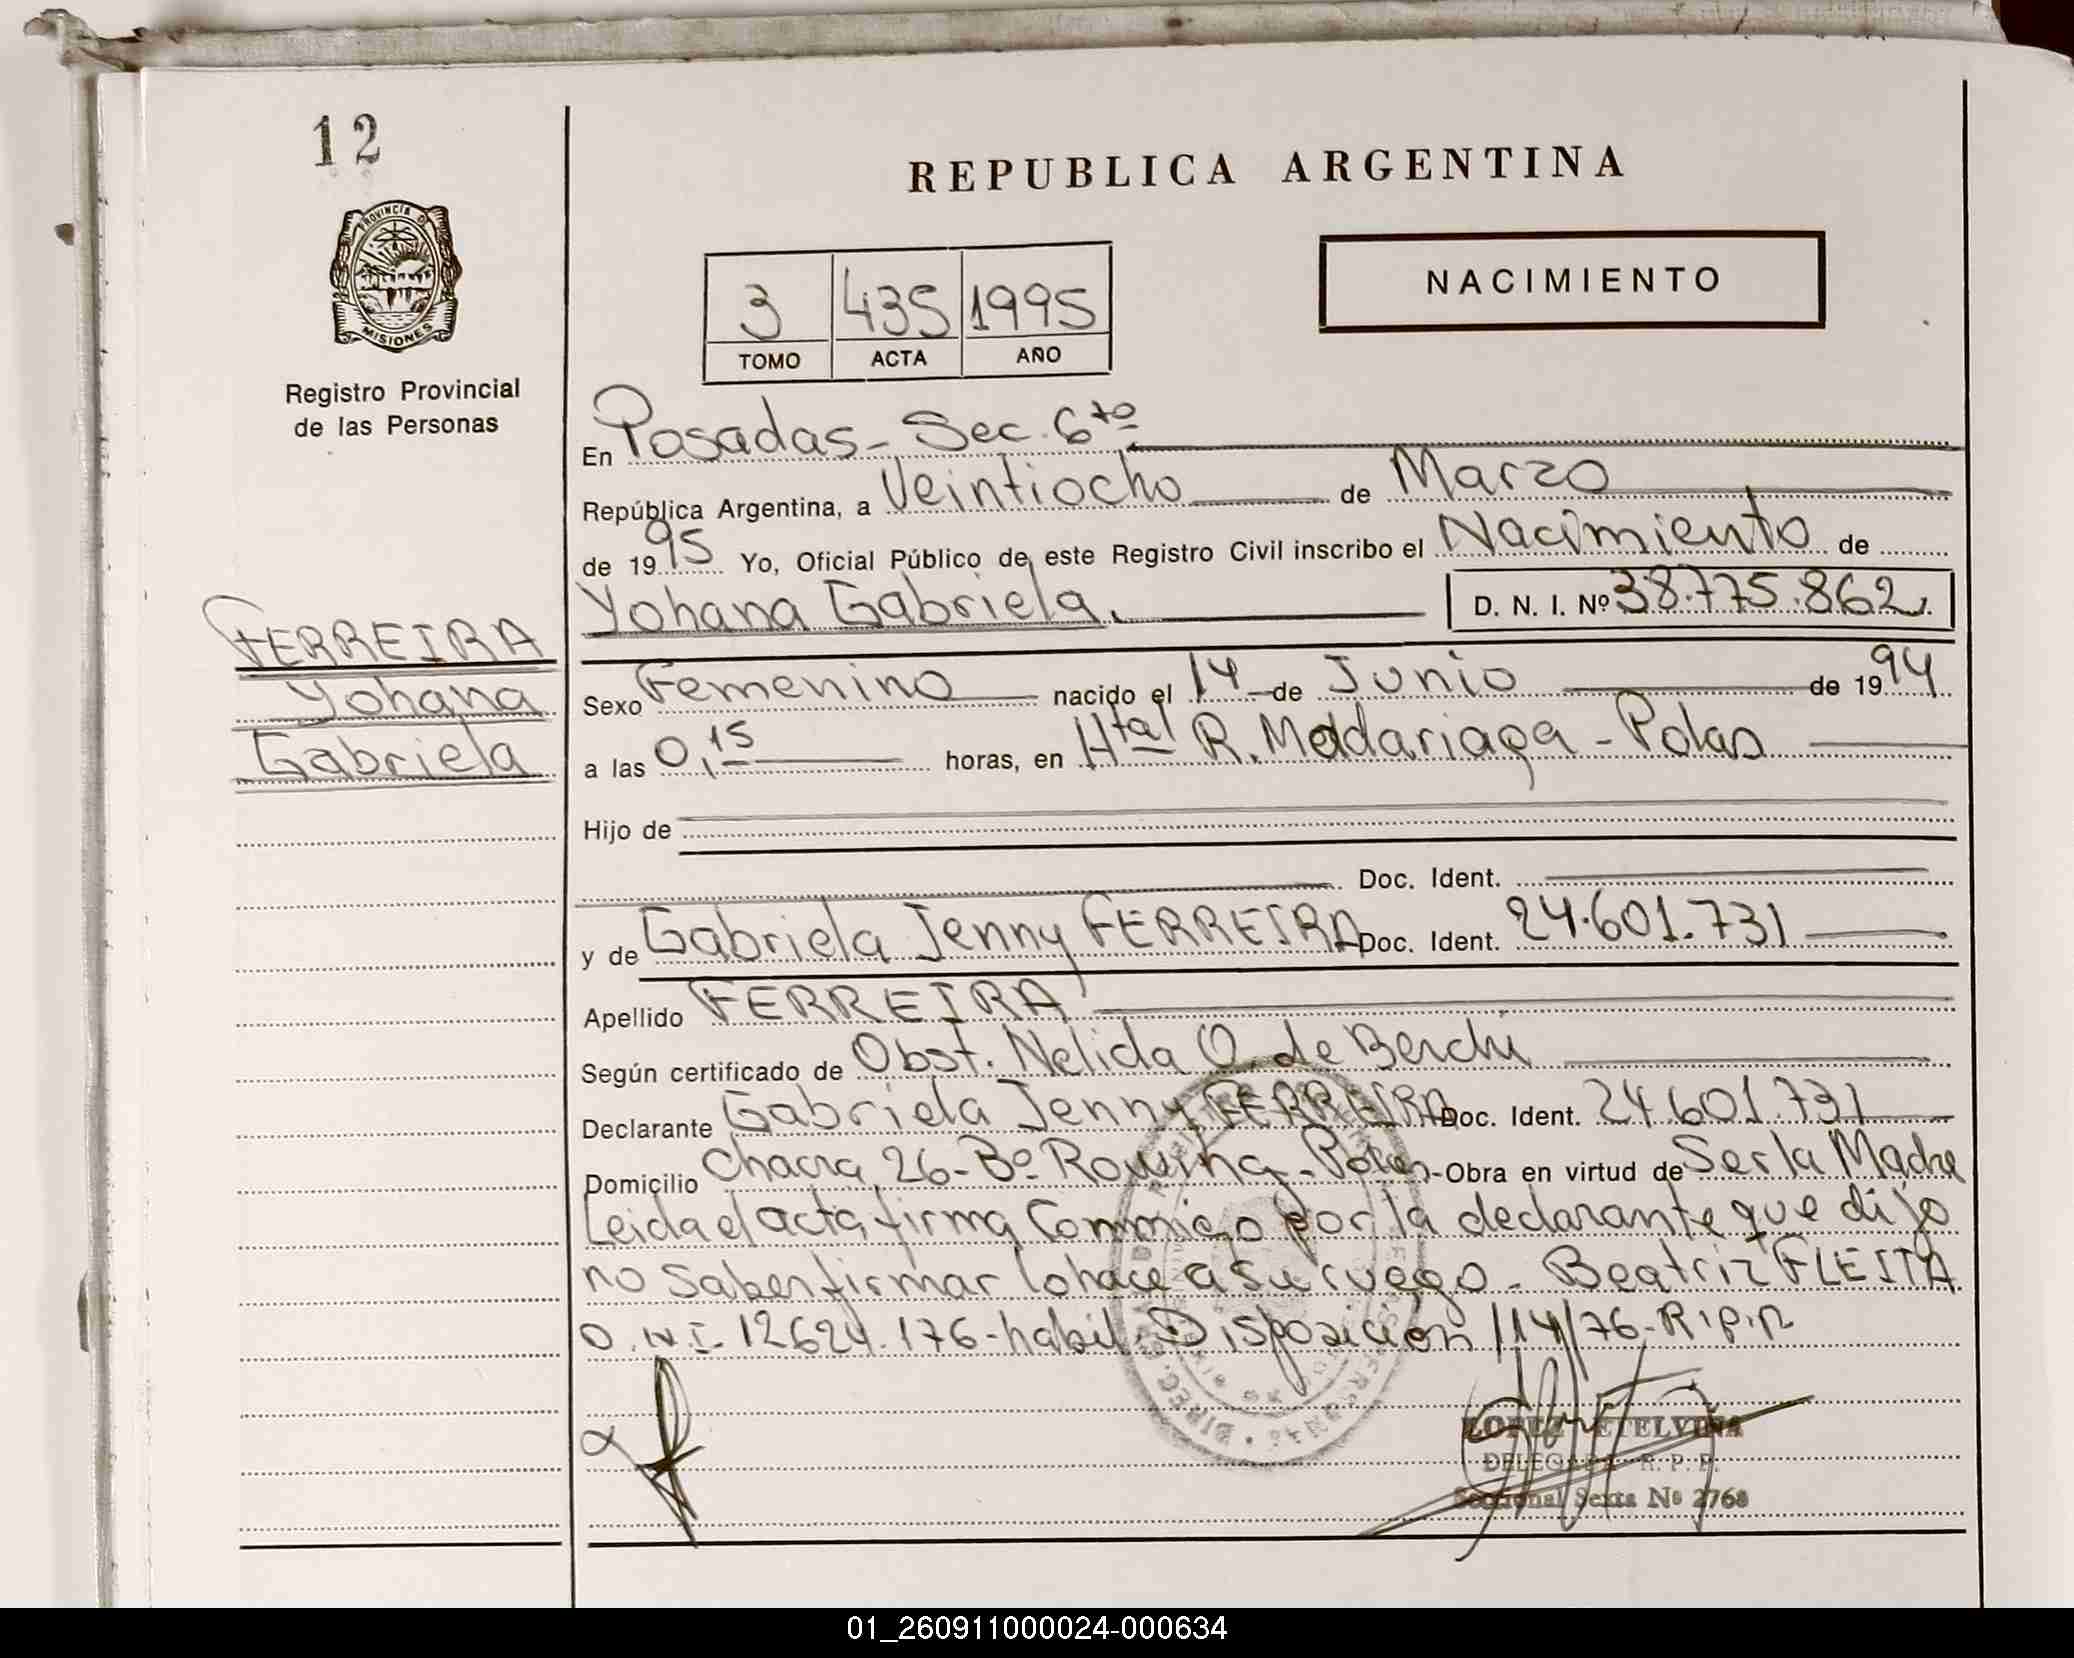 12
REPUBLICA ARGENTINA
PROVINCIA DE
MISIONES
NACIMIENTO
3 435 1995
TOMO ACTA AÑO
Registro Provincial
de las Personas
En Posadas - Sec. 6to
República Argentina, a Veintiocho de Marzo
de 1995 Yo, Oficial Público de este Registro Civil inscribo el Nacimiento de
Yohana Gabriela. D. N. I. Nº 38.775.862
FERREIRA
Yohana
Gabriela
Sexo Femenino nacido el 14 de Junio de 1994
a las 0,15 horas, en Htal R. Madariaga - Pdas
Hijo de
Doc. Ident.
y de Gabriela Jenny FERREIRA Doc. Ident. 24.601.731
Apellido FERREIRA
Según certificado de Obst. Nelida O. de Berchi
Declarante Gabriela Jenny FERREIRA Doc. Ident. 24.601.731
Domicilio Chacra 26 - Bº Rowing - Pdas - Obra en virtud de Ser la Madre
Leida el acta, firma Conmigo por la declarante que dijo
no saber firmar lo hace a su ruego - Beatriz FLEITA
D.N.I. 12624.176 - habil. Disposición 114/76 - R.P.P.
LOPEZ ETELVINA
DELEGADA R. P. P.
Seccional Sexta Nº 2768
01_260911000024-000634